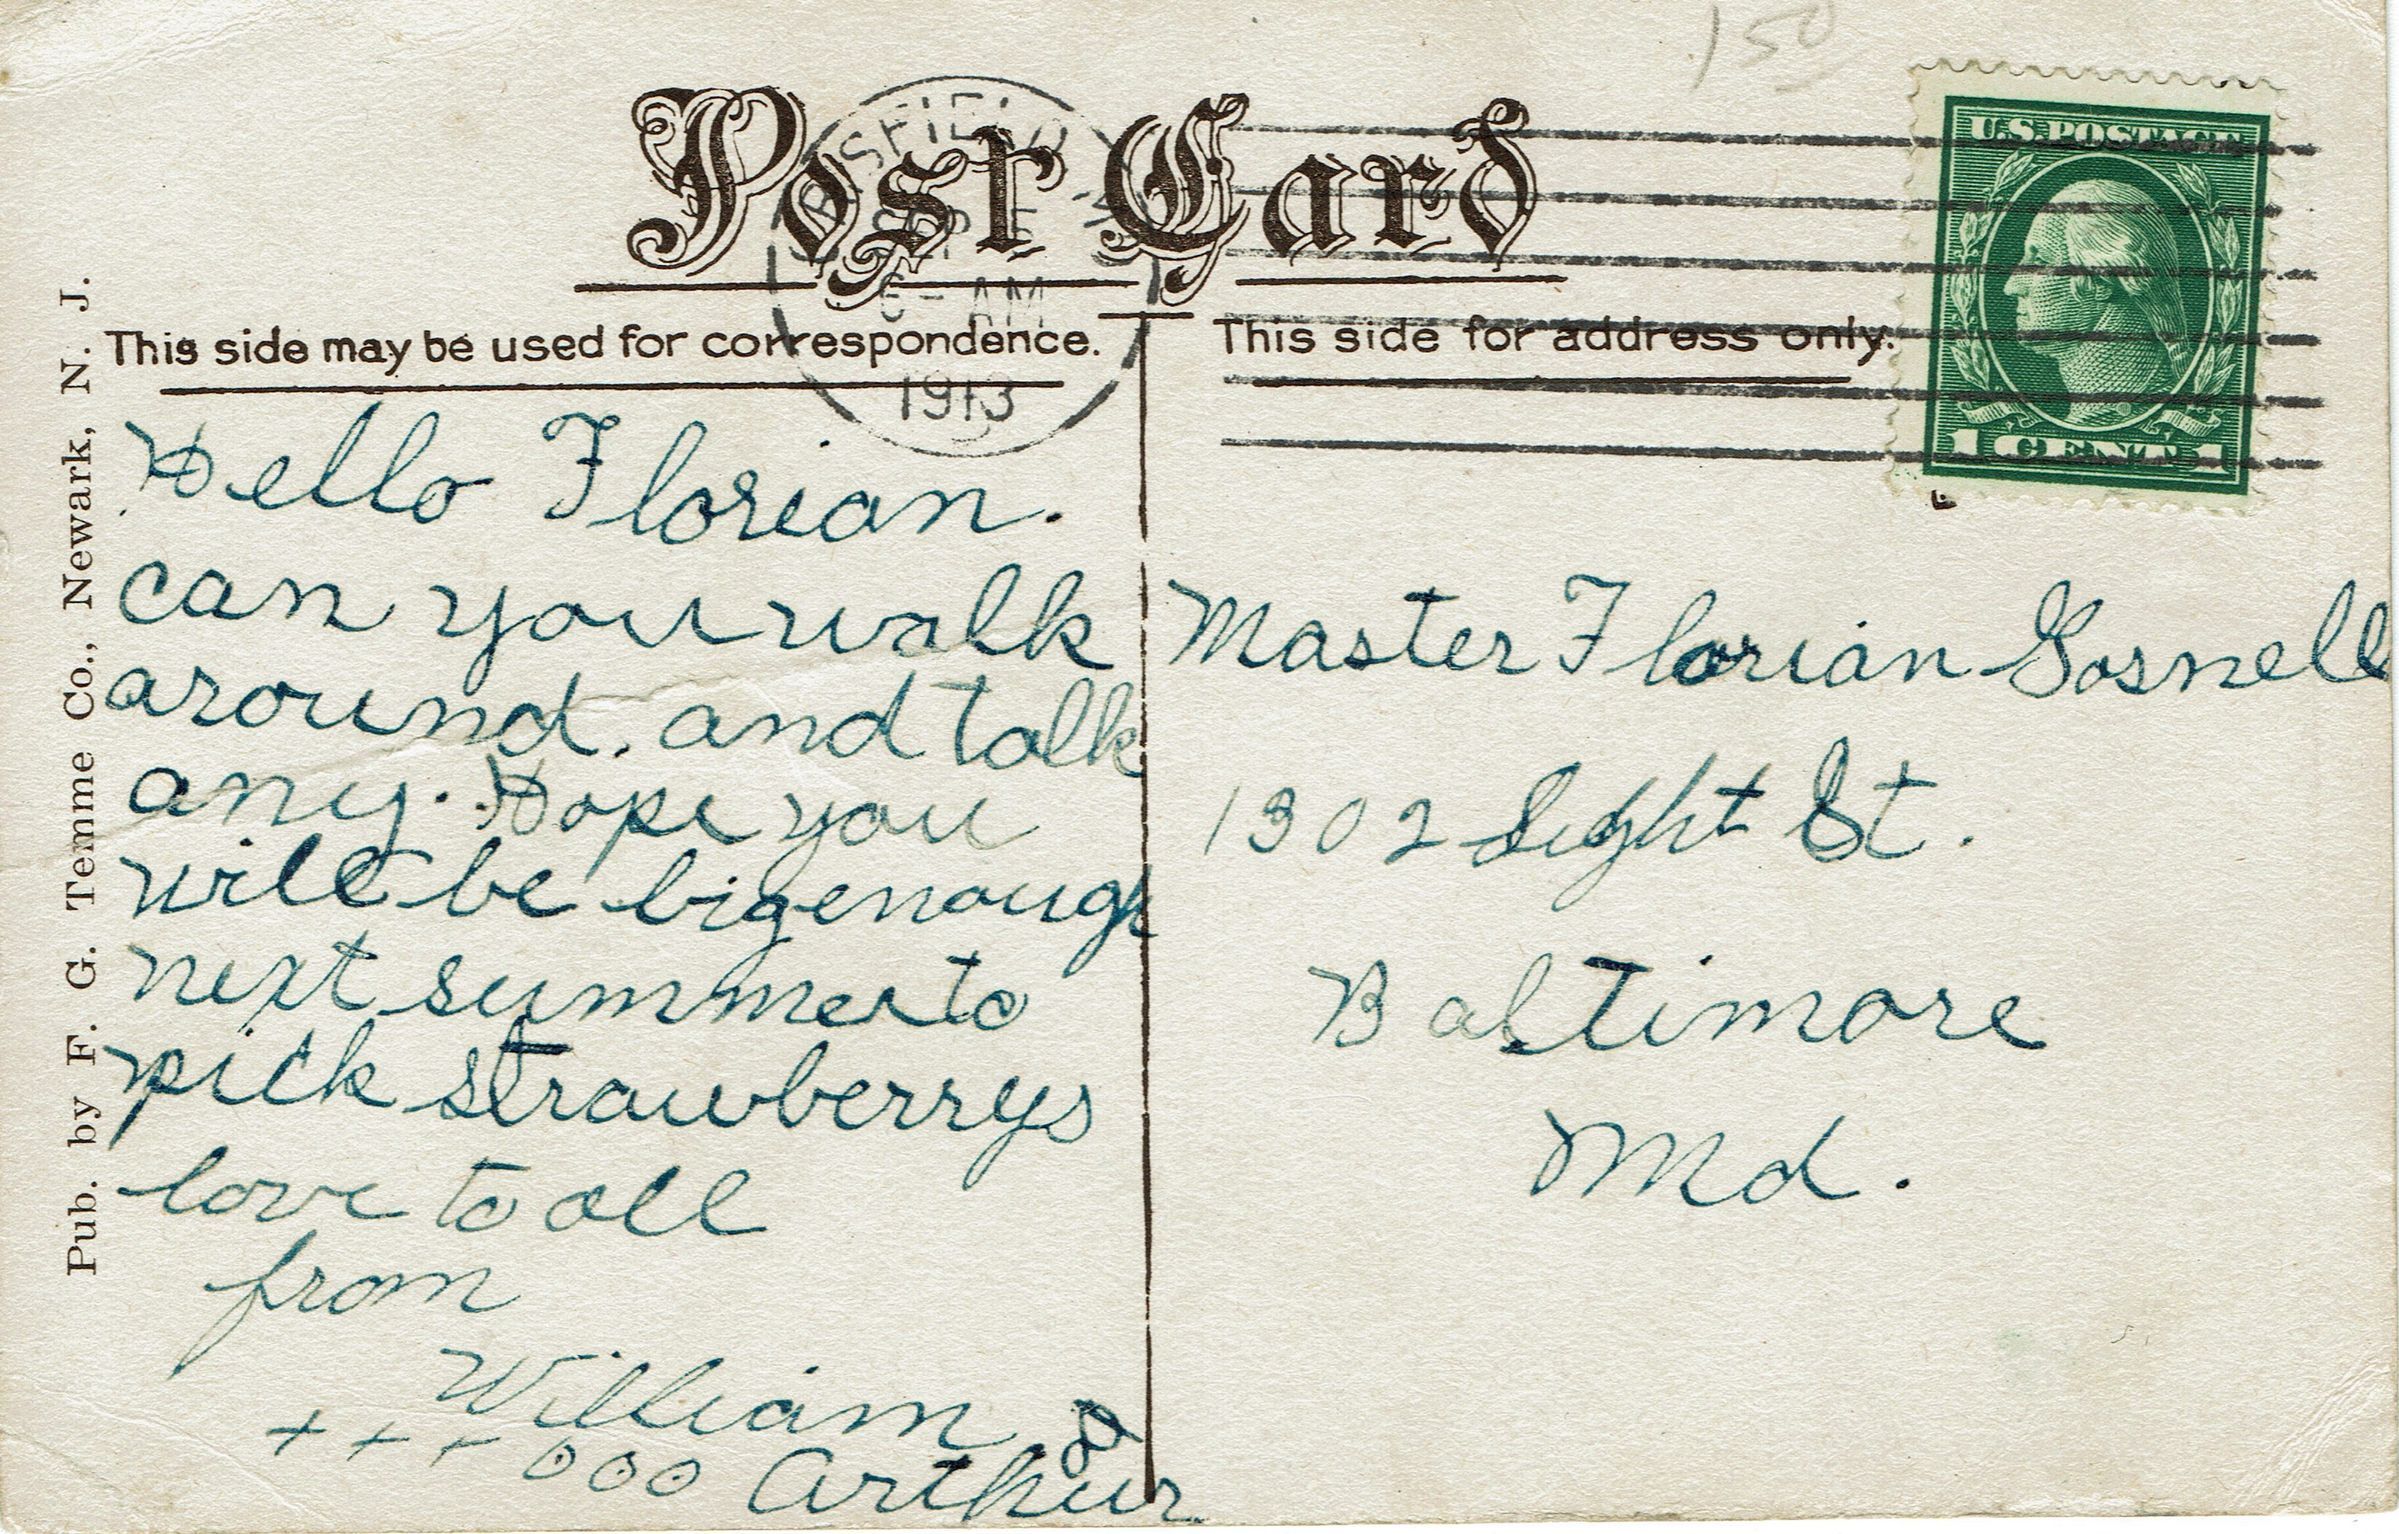 150
Post Card
SFIELD
5-AM
1913
U.S. POSTAGE
1 CENT 1
This side may be used for correspondence.
This side for address only.
Pub. by F. G. Temme Co., Newark, N. J.
Hello Florian.
can you walk
around. and talk
any. Hope you
will be big enough
next summer to
pick strawberrys
love to all
from
William &
+ + + o o o Arthur
Master Florian Gosnell
1302 Light St.
Baltimore
Md.